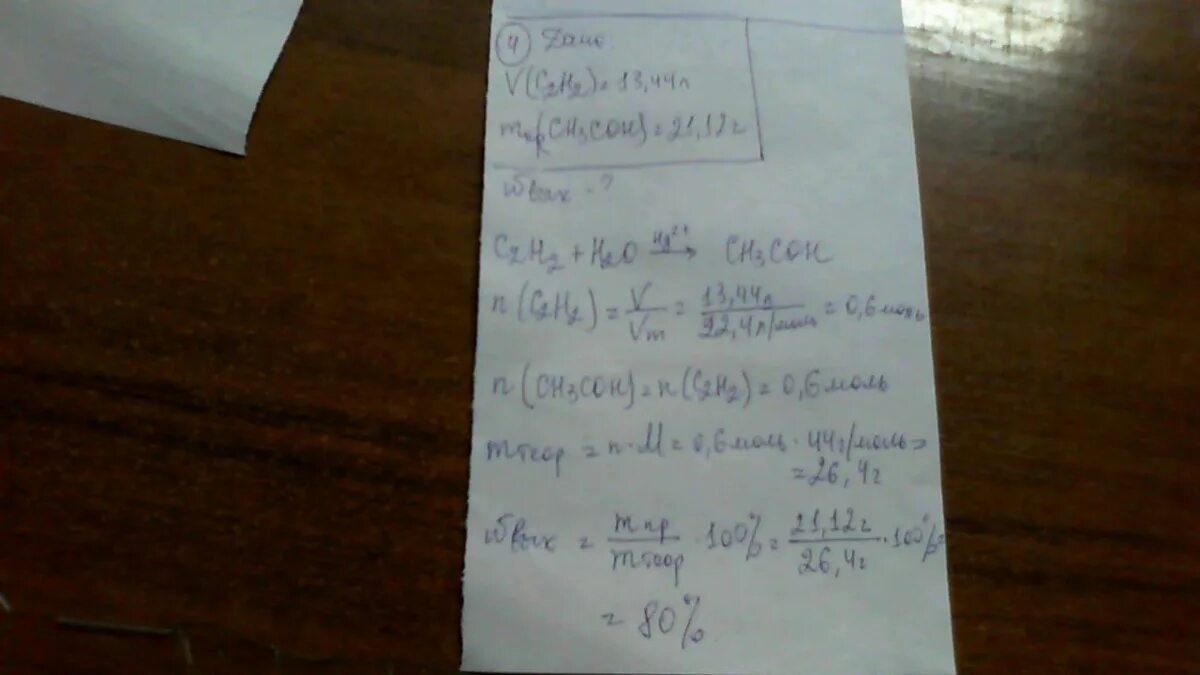 4 Дано:
V(C₂H₂) = 13,44 л
mпр(CH₃COH) = 21,12 г
ω вых - ?
C₂H₂ + H₂O Hg²⁺→ CH₃COH
n(C₂H₂) = V/Vm = 13,44 л/22,4 л/моль = 0,6 моль
n(CH₃COH) = n(C₂H₂) = 0,6 моль
mтеор = n·M = 0,6 моль · 44 г/моль =
= 26,4 г
ω вых = mпр/mтеор · 100% = 21,12 г/26,4 г · 100% =
= 80%